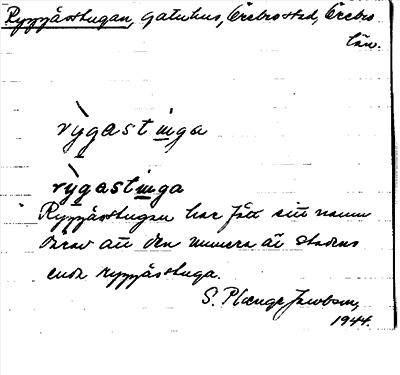 Ryggåsstugan, gatuhus, Örebro stad, Örebro
län.
rỳgastinga
rỳgastinga
Ryggåsstugan har fått sitt namn
därav att den numera är stadens
enda ryggåsstuga.
S. Plænge Jacobson,
1944.